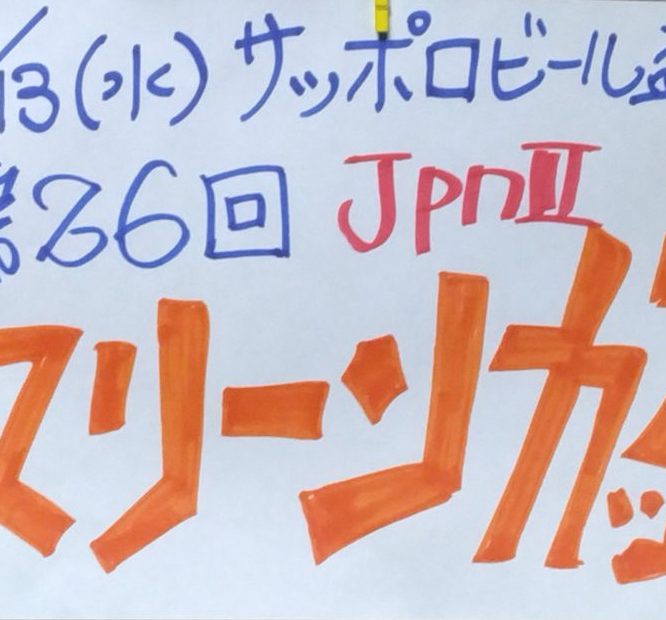 /13(水)サッポロビール
第26回 JpnⅡ
マリーンカッ